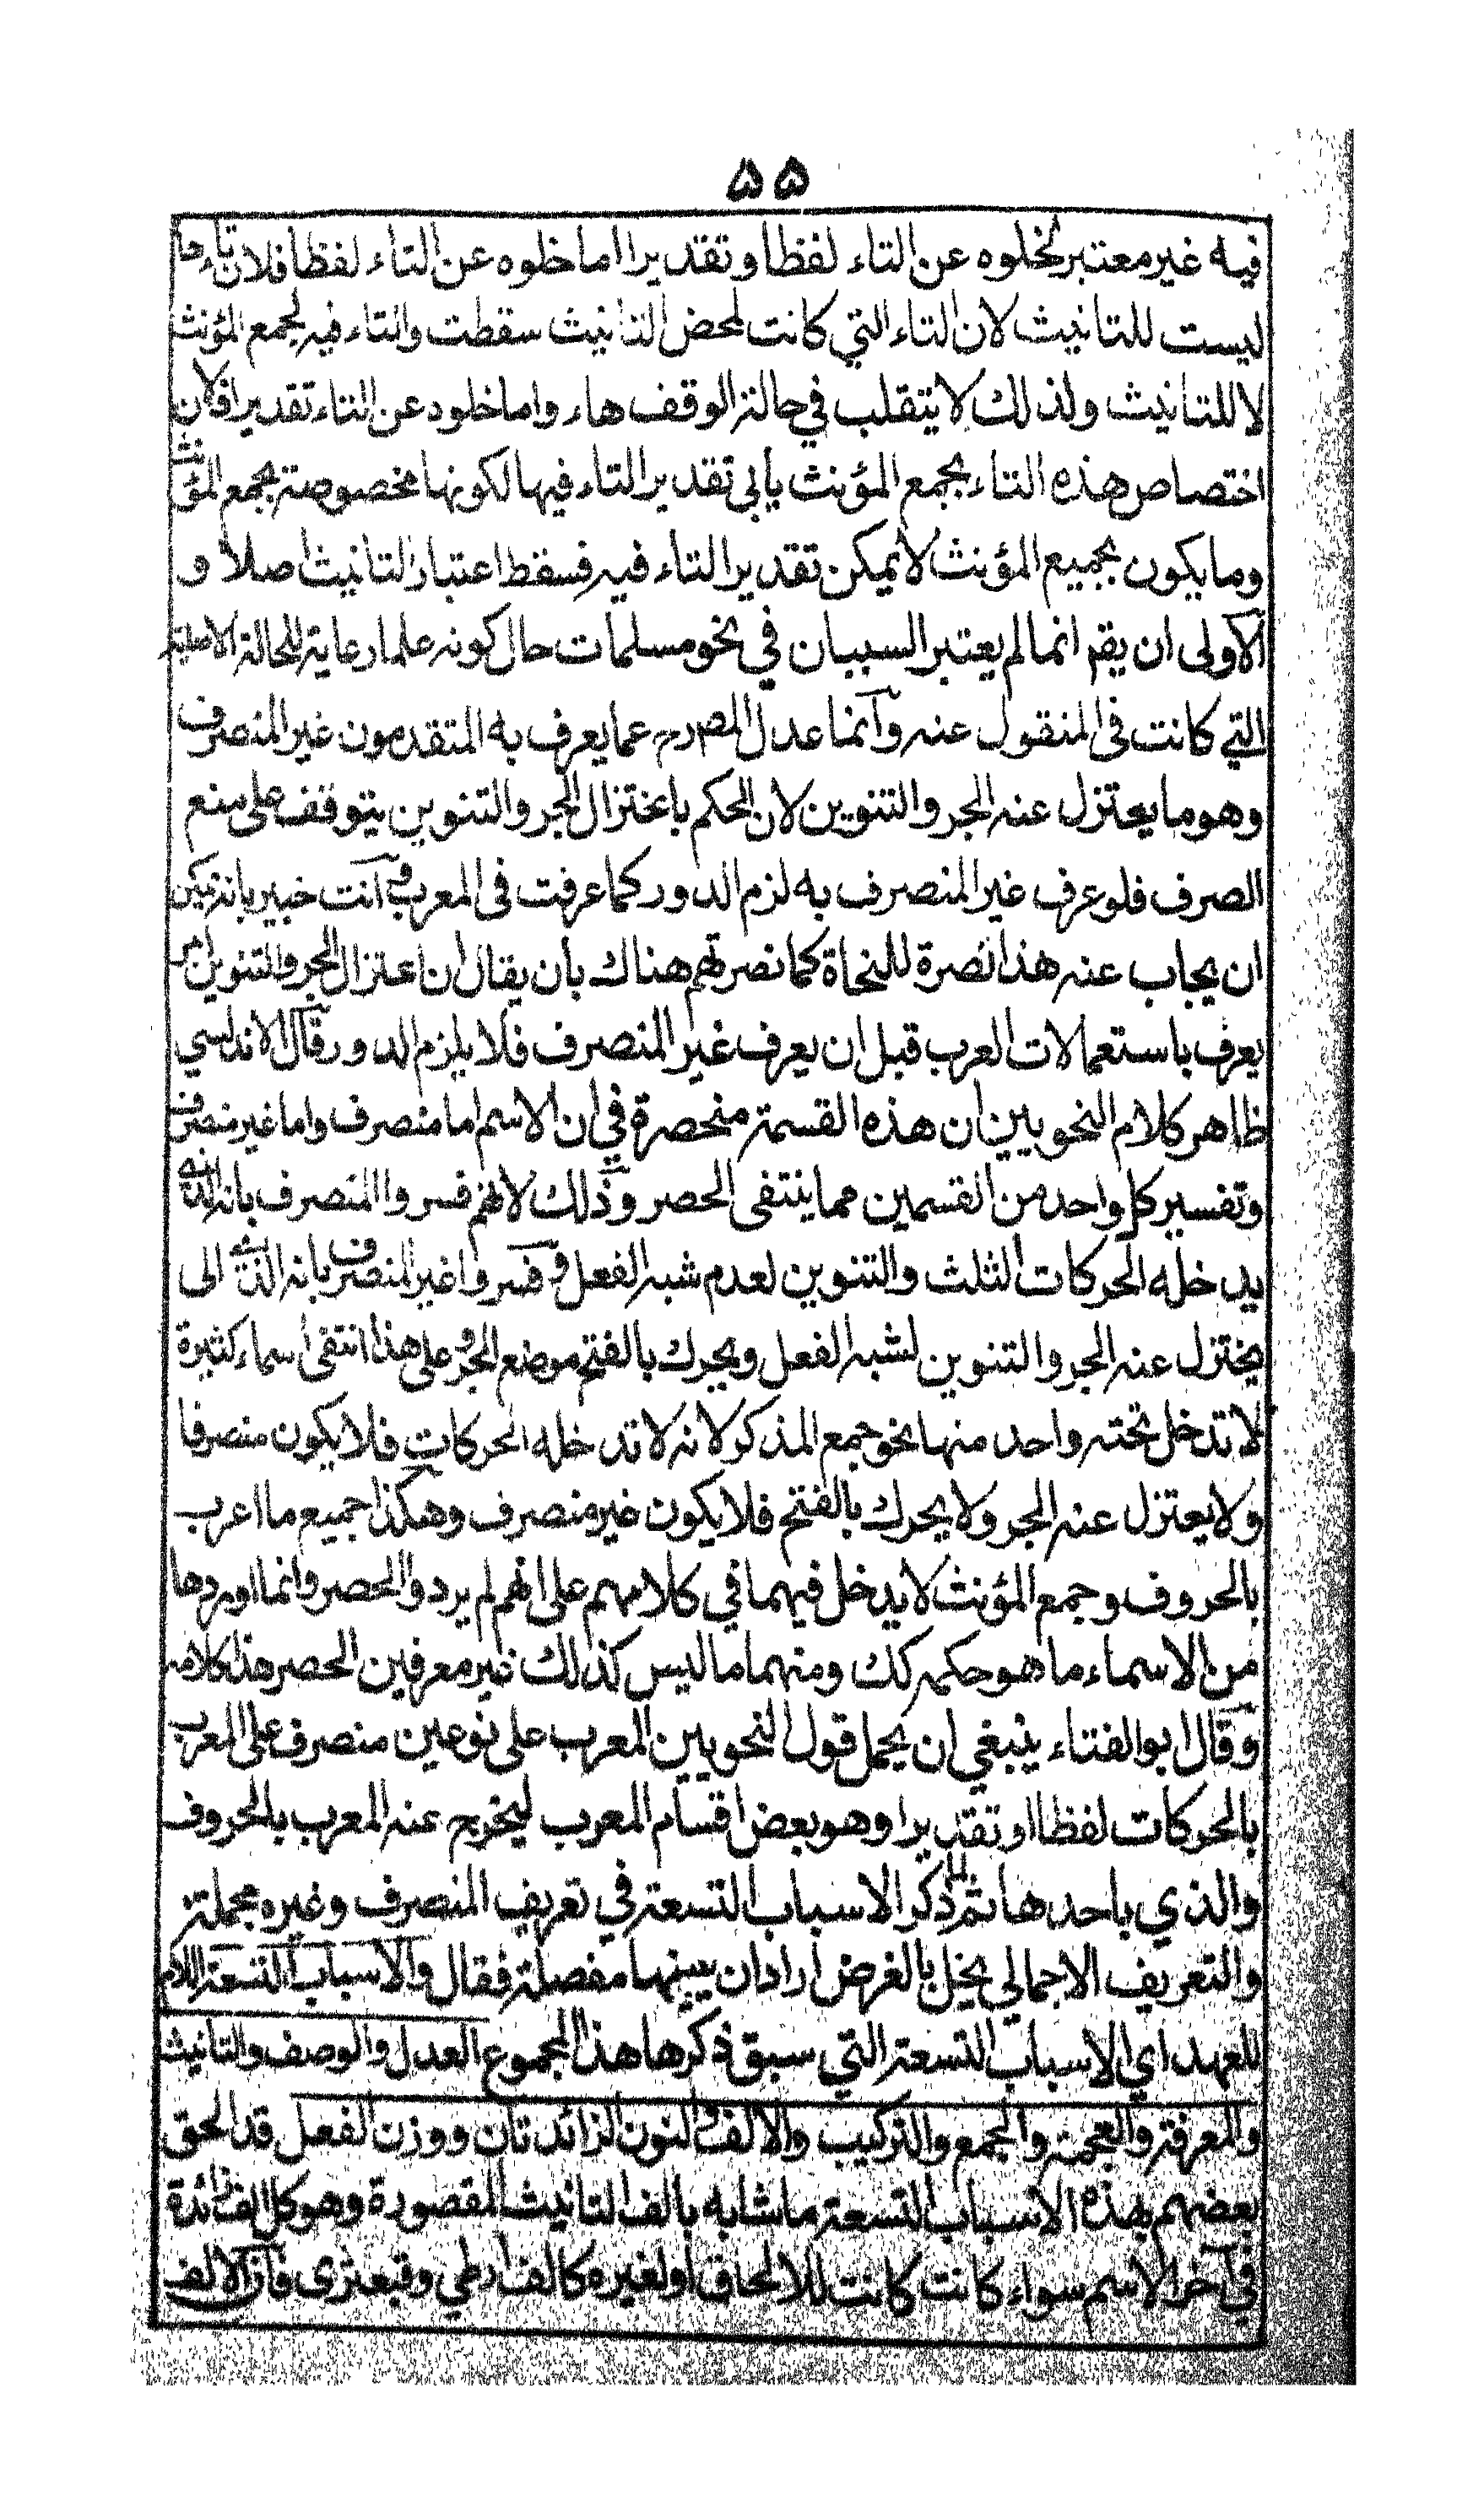 ۵۵
فيه غير معتبر لخلوه عن التاء لفظا وتقديرا اما خلوه عن التاء لفظا فلان تاء ها
ليست للتانيث لان التاء التي كانت لمحض التانيث سقطت والتاء فيه لجمع المؤنث
لا للتانيث ولذلك لا يتقلب في حالة الوقف هاء واما خلوه عن التاء تقديرا فلان
اختصاص هذه التاء بجمع المؤنث يأبى تقدير التاء فيها لكونها مخصوصة بجمع المؤنث
وما يكون بجميع المؤنث لا يمكن تقدير التاء فيه فسقط اعتبار التانيث اصلا و
الاولى ان يقم انما لم يعتبر السببان في نحو مسلمات حال كونه علما رعاية للحالة الاصلية
التي كانت في المنقول عنه وانما عدل المصرح عما يعرف به المتقدمون غير المنصرف
وهو ما يعتزل عنه الجر والتنوين لان الحكم باختزال الجر والتنوين يتوقف على منع
الصرف فلو عرف غير المنصرف به لزم الدور كما عرفت في المعرب وانت خبير بانه يمكن
ان يجاب عنه هذا نصرة للنحاة كما نصرتهم هناك بأن يقال ان اعتزال الجر والتنوين امر
يعرف باستعمالات العرب قبل ان يعرف غير المنصرف فلا يلزم الدور قال الاندلسي
ظاهر كلام النحويين ان هذه القسمة منحصرة في ان الاسم اما منصرف واما غير منصرف
وتفسير كل واحد من القسمين مما ينتفى الحصر وذلك لانهم فسروا المنصرف بانه الذي
يدخله الحركات الثلث والتنوين لعدم شبه الفعل وفسروا غير المنصرف بانه الذي الى
يختزل عنه الجر والتنوين لشبه الفعل ويحرك بالفتح موضع الجر وعلى هذا انتفى اسماء كثيرة
لا تدخل تحته واحد منها نحو جمع المذكر لانه لا تدخله الحركات فلا يكون منصرفا
ولا يعتزل عنه الجر ولا يحرك بالفتح فلا يكون غير منصرف وهكذا جميع ما اعرب
بالحروف وجمع المؤنث لا يدخل فيهما في كلامهم على انهم لم يردوا الحصر وانما اوردها
من الاسماء ما هو حكمه كك ومنهما ما ليس كذلك غير معرفين الحصر هذا كلامه
وقال ابو الفتاء ينبغي ان يحمل قول النحويين المعرب على نوعين منصرف على المعرب
بالحركات لفظا او تقديرا وهو بعض اقسام المعرب ليخرج عنه المعرب بالحروف
والذي باحدها ثم لما ذكر الاسباب التسعة في تعريف المنصرف وغيره مجملة
والتعريف الاجمالي يخل بالغرض اراد ان يبينها مفصلة فقال والاسباب التسعة اللام
للعهد اي الاسباب التسعة التي سبق ذكرها هذا المجموع العدل والوصف والتانيث
والمعرفة والعجمة والجمع والتركيب والالف والنون الزائدتان ووزن الفعل قد الحق
بعضهم بهذه الاسباب التسعة ما شابه بالف التانيث المقصورة وهو كل الف زائدة
في آخر الاسم سواء كانت كانت للالحاق او لغيره كالف ارطي وقبعثرى فان الالف